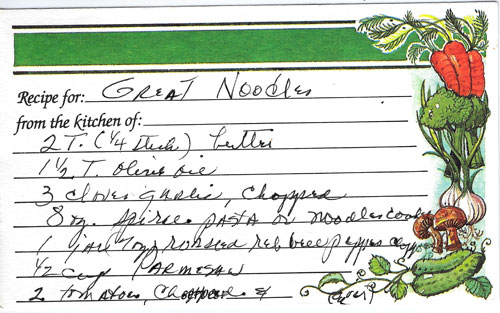 Recipe for: Great Noodles
from the kitchen of:
2 T. (1/4 stick) butter
1 1/2 T. olive oil
3 cloves garlic, chopped
8 oz. spiral pasta or noodles cook
1 jar 7oz roasted red bell peppers chopp
1/2 cup Parmesan
2 tomatoes, chopped &
(over)